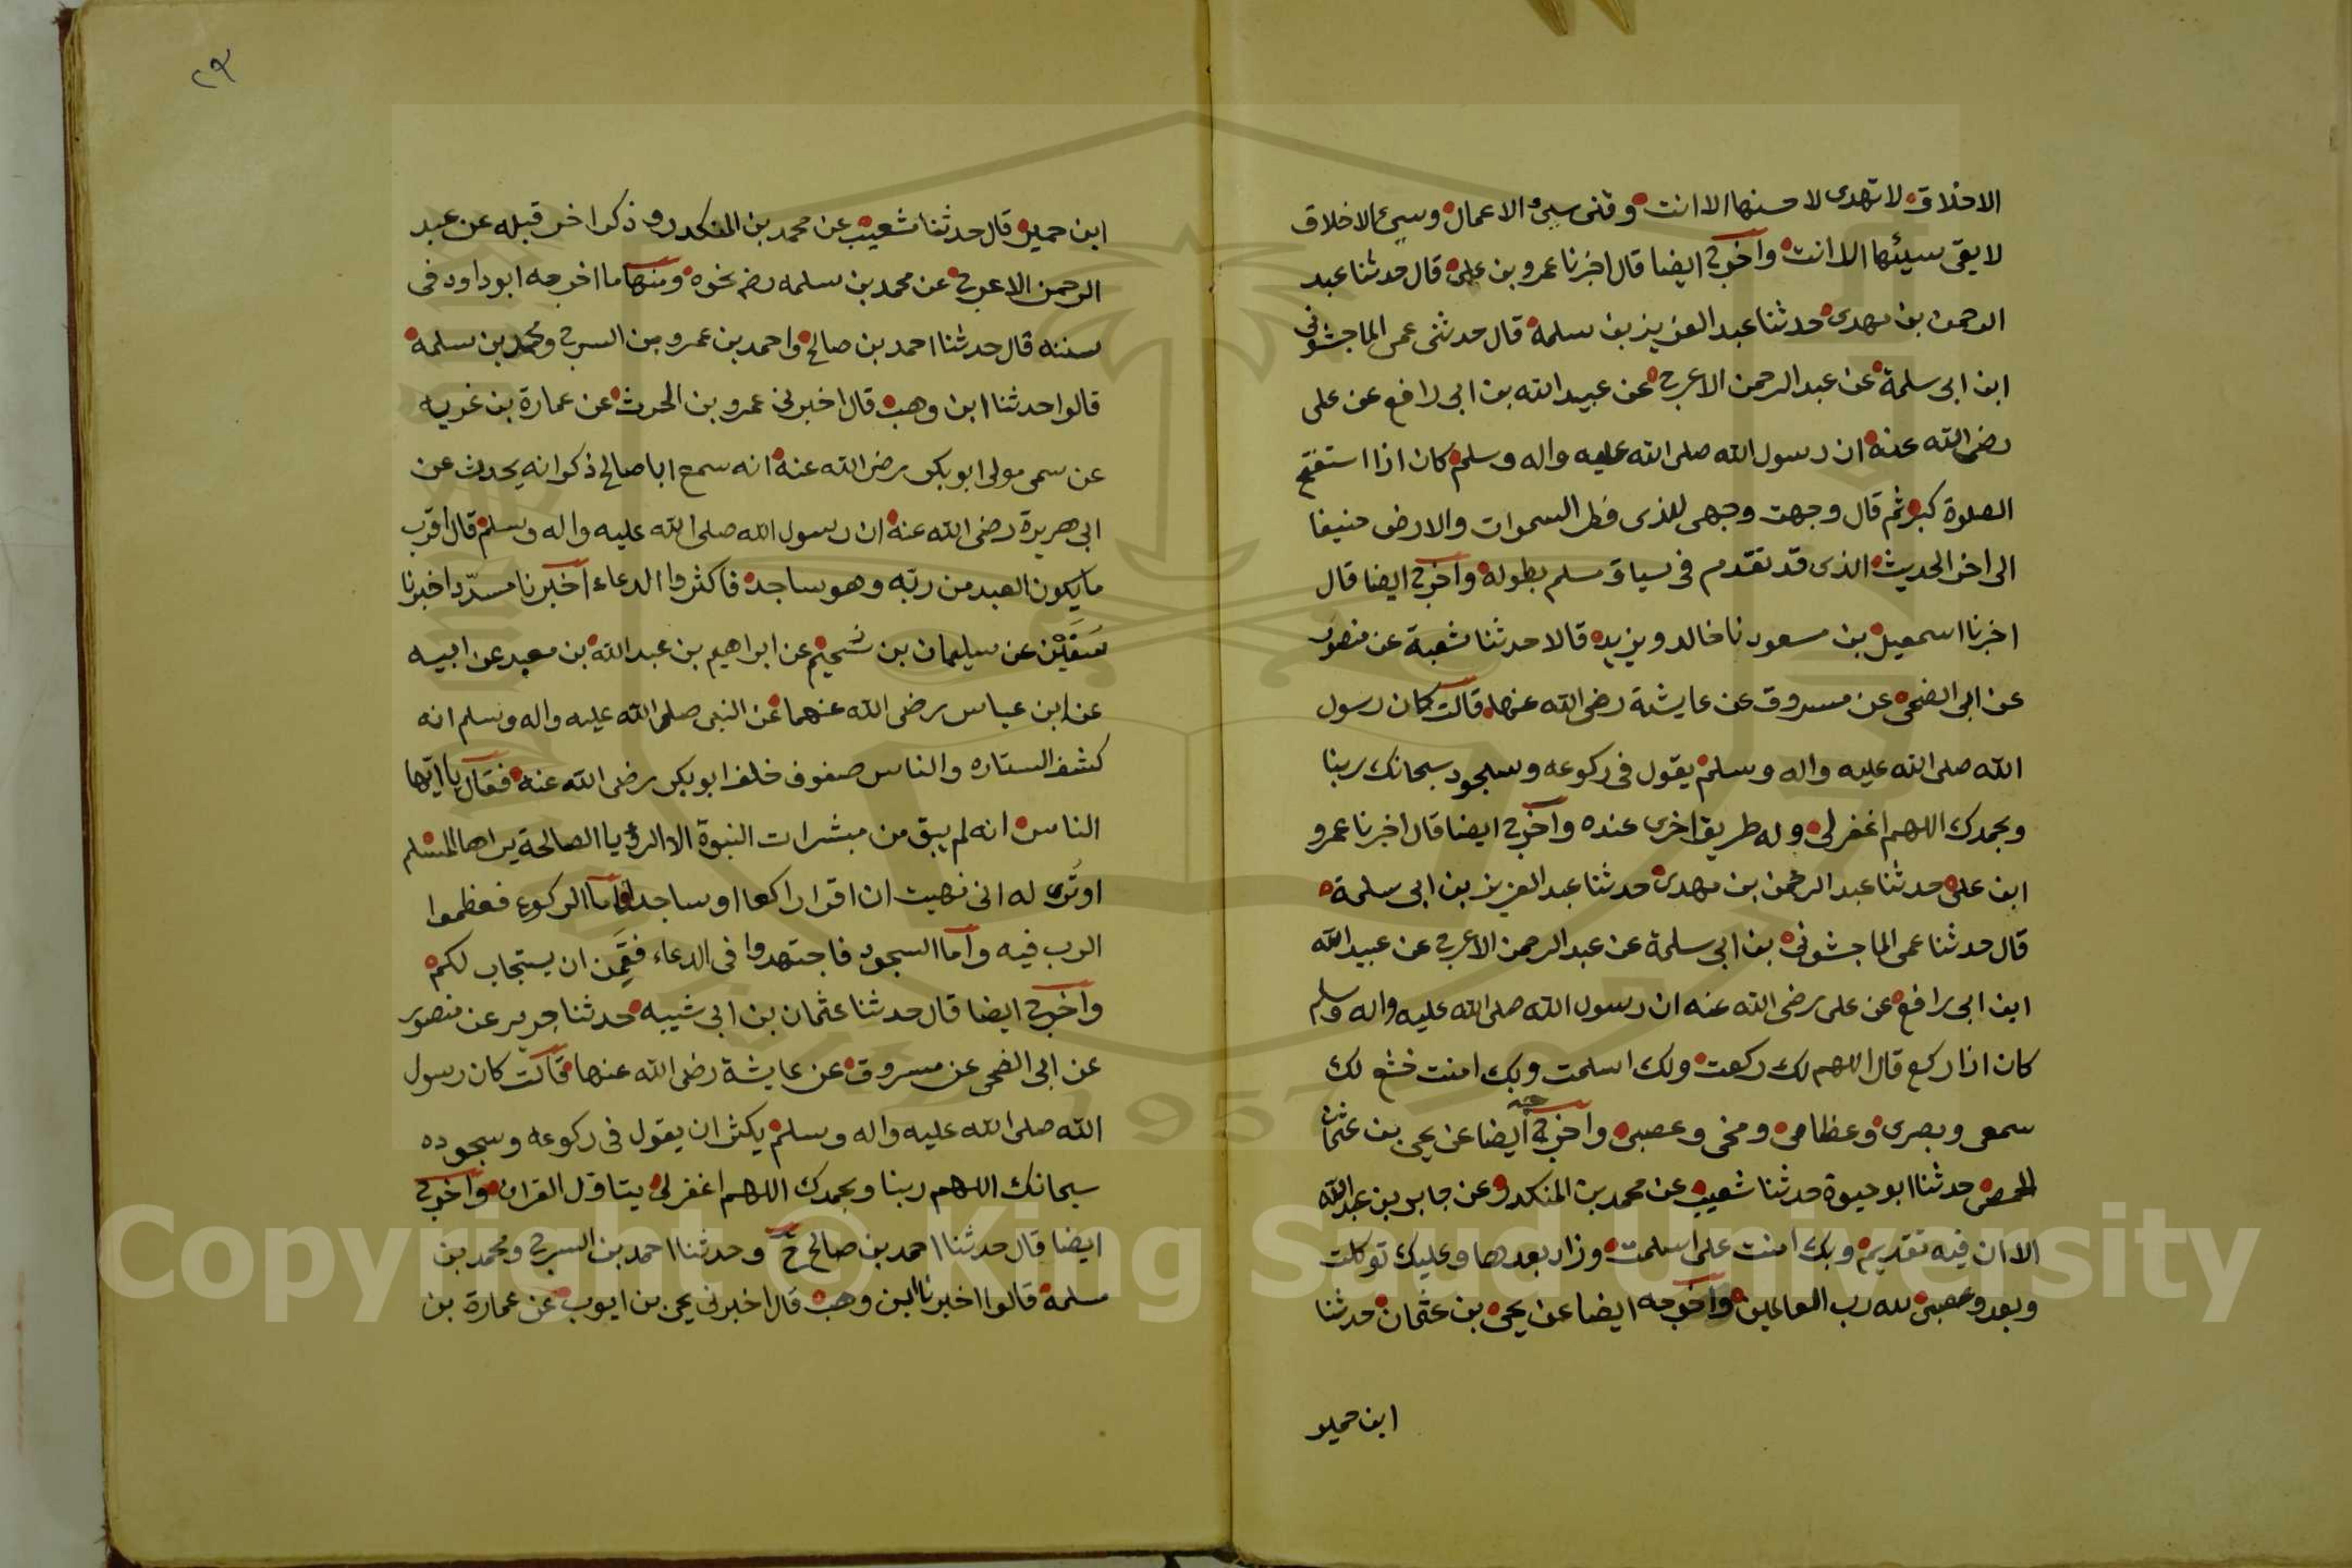 الاخلاق لا تهدى لا حسنها الا انت وقنى سيئ الاعمال وسيئ الاخلاق
لا يقى سيئها الا انت واخرج ايضا قال اخبرنا عمرو بن على قال حدثنا عبد
الرحمن بن مهدى حدثنا عبد العزيز بن سلمة قال حدثنى عمى الماجشونى
ابن ابى سلمة عن عبد الرحمن الاعرج عن عبيد الله بن ابى رافع عن على
رضى الله عنه ان رسول الله صلى الله عليه واله وسلم كان اذا استفتح
الصلوة كبر ثم قال وجهت وجهى للذى فطر السموات والارض حنيفا
الى اخر الحديث الذى قد تقدم فى سياق مسلم بطوله واخرج ايضا قال
اخبرنا اسمعيل بن مسعود نا خالد ويزيد قالا حدثنا شعبة عن منصور
عن ابى الضحى عن مسروق عن عايشة رضى الله عنها قالت كان رسول
الله صلى الله عليه واله وسلم يقول فى ركوعه وسجود سبحانك ربنا
وبحمدك اللهم اغفر لى وله طريق اخرى عنده واخرج ايضا قال اخبرنا عمرو
ابن على حدثنا عبد الرحمن بن مهدى حدثنا عبد العزيز بن ابى سلمة
قال حدثنا عمى الماجشونى بن ابى سلمة عن عبد الرحمن الاعرج عن عبيد الله
ابن ابى رافع عن على رضى الله عنه ان رسول الله صلى الله عليه واله وسلم
كان اذا ركع قال اللهم لك ركعت ولك اسلمت وبك امنت خشع لك
سمعى وبصرى وعظامى ومخى وعصبى واخرج ايضا عن يحى بن عثمان
الحمصى حدثنا ابو حيوة حدثنا شعيب عن محمد بن المنكدر عن جابر بن عبد الله
الا ان فيه تقديم وبك امنت على اسلمت وزاد بعدها وعليك توكلت
وبعد وعصبى لله رب العالمين واخرجه ايضا عن يحى بن عثمان حدثنا
ابن حمير
٢٩
ابن حمير قال حدثنا شعيب عن محمد بن المنكدر وذكر اخر قبله عن عبد
الرحمن الاعرج عن محمد بن سلمه رضى نحوه ومنها ما اخرجه ابو داود فى
سننه قال حدثنا احمد بن صالح واحمد بن عمرو بن السرح ومحمد بن سلمة
قالوا حدثنا ابن وهب قال اخبرنى عمرو بن الحرث عن عمارة بن غزيه
عن سمى مولى ابو بكر رضى الله عنه انه سمع ابا صالح ذكوانه يحدث عن
ابى هريرة رضى الله عنه ان رسول الله صلى الله عليه واله وسلم قال اقرب
ما يكون العبد من ربه وهو ساجد فاكثروا الدعاء اخبرنا مسدد اخبرنا
سفين عن سليمان بن سحيم عن ابراهيم بن عبد الله بن معبد عن ابيه
عن ابن عباس رضى الله عنهما عن النبى صلى الله عليه واله وسلم انه
كشف الستاره والناس صفوف خلف ابو بكر رضى الله عنه فقال يا ايها
الناس انه لم يبق من مبشرات النبوة الا الرؤيا الصالحة يراها المسلم
او ترى له انى نهيت ان اقرا راكعا او ساجدا فاما الركوع فعظموا
الرب فيه واما السجود فاجتهدوا فى الدعاء فقمن ان يستجاب لكم
واخرج ايضا قال حدثنا عثمان بن ابى شيبه حدثنا جرير عن منصور
عن ابى الضحى عن مسروق عن عايشة رضى الله عنها قالت كان رسول
الله صلى الله عليه واله وسلم يكثر ان يقول فى ركوعه وسجوده
سبحانك اللهم ربنا وبحمدك اللهم اغفر لى يتاول القران واخرج
ايضا قال حدثنا احمد بن صالح ح وحدثنا احمد بن السرح ومحمد بن
سلمة قالوا اخبرنا ابن وهب قال اخبرنى يحى بن ايوب عن عمارة بن
Copyright © King Saud University
1957